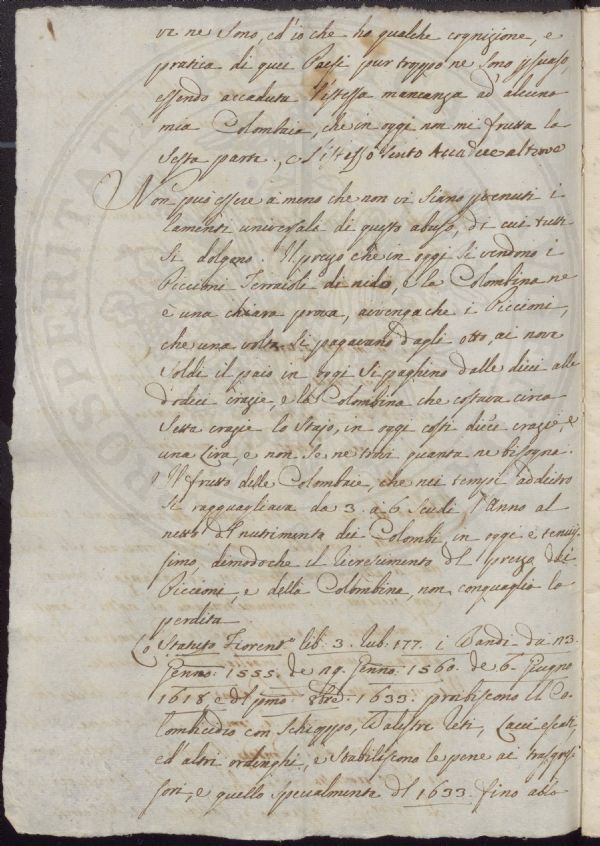 vi ne sono, ed io che ho qualche cognizione, e
pratica di quei Paesi pur troppo ne sono psuaso,
essendo accaduta l'istessa mancanza ad alcuna
mia Colombaia, che in oggi non mi frutta la
sesta parte, e l'istesso sento accadere altrove
Non può essere à meno che non vi siano pvenuti i
lamenti universali di questo abuso, di cui tutti
si dolgano. Il prezzo che in oggi si vendono i
Piccioni Terraioli di nido, e la Colombina ne
è una chiara prova, avvengache i Piccioni,
che una volta si pagavano dagli otto, ai nove
soldi il paio in oggi si paghino dalle dieci alle
dodici crazie, e la Colombina che costava circa
sette crazie lo Staio, in oggi costi dieci crazie, e
una Lira, e non se ne trovi quanta ne bisogna.
Il frutto delle Colombaie, che nei tempi addietro
si ragguagliava da 3. à 6. Scudi l'Anno al
netto dl nutrimento dei Colombi, in oggi è tenuis-
simo, dimodoche il recrescimento dl prezzo dei
Piccioni, e della Colombina, non conguaglia la
perdita.
Lo Statuto Fiorent.o lib. 3. Rub. 177. i Bandi da 23.
Genno: 1555. de 29. Genno: 1560. de 6. Giugno
1618. e dl pmo. 8bre. 1633. proibiscono il Co-
lombicidio con Schioppo, Balestre Reti, Lacci escati,
ed altri ordinghi, e stabiliscono le pene ai trasgres-
sori, e quello specialmente dl 1633. fino allo
PROSPERITATI